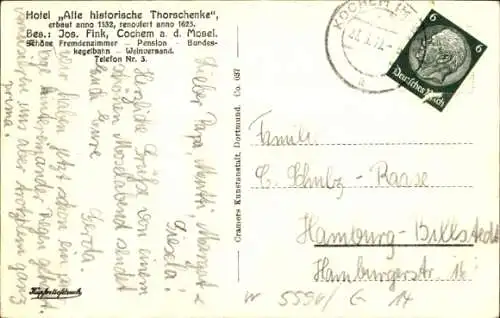 Hotel „Alte historische Thorschenke“,
erbaut anno 1332, renoviert anno 1625.
Bes.: Jos. Fink, Cochem a. d. Mosel.
Schöne Fremdenzimmer — Pension — Bundes-
kegelbahn — Weinversand.
Telefon Nr. 3.
Lieber Papa, Mutti, Margut &
Gisela!
Herzliche Grüße von einem
schönen Moselabend sendet
Euch Eure
Gerda.
Wir haben jetzt schon ein paar
Tage hintereinander Regen gehabt
uns aber trotzdem ganz
prima.
Kupfertiefdruck
Cramers Kunstanstalt, Dortmund. Co. 637
COCHEM
6
6
Deutsches Reich
Familie
C. Schulz-Raase
Hamburg-Billstedt
Hamburgerstr. 16
W 5596/ G 14